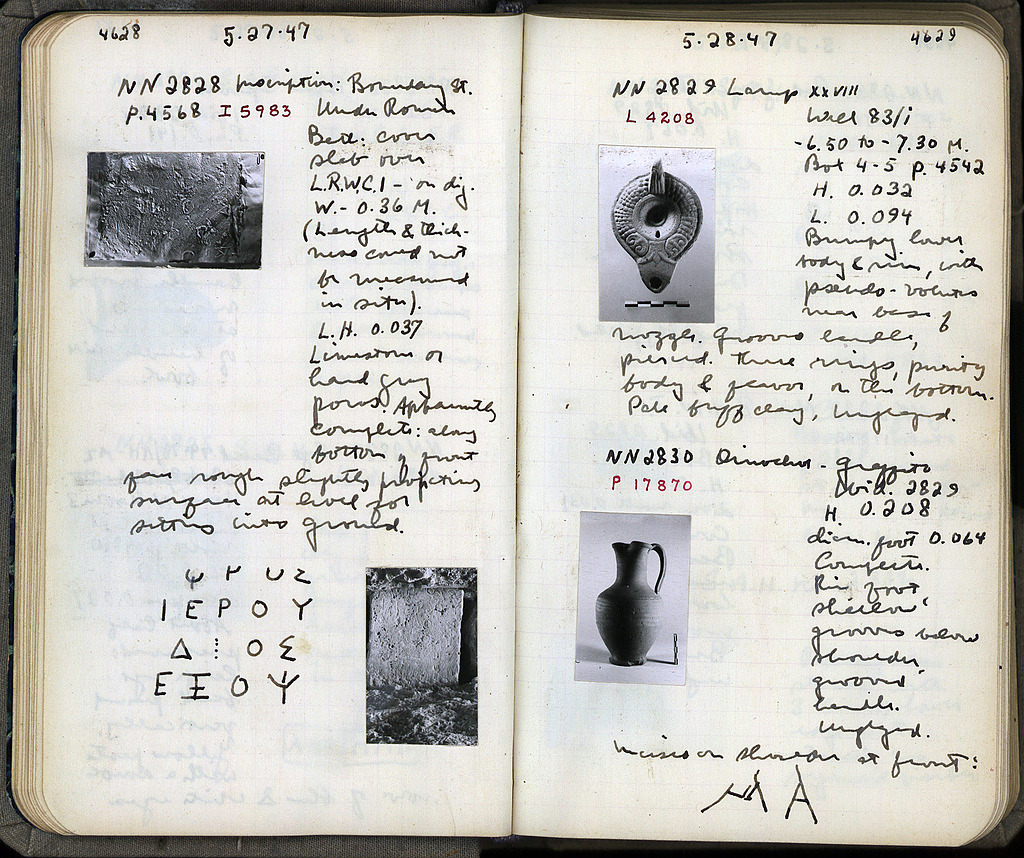 4628 5·27·47
NN 2828 Inscription: Boundary St.
P.4568 I 5983 Under Roman
Bath: cover
slab over
L.R.W.C.1 - on dig.
W. - 0.36 M.
(Length & thick-
ness could not
be measured
in situ).
L.H. 0.037
Limestone or
hard gray
poros. Apparently
complete: along
bottom of front
face rough slightly projecting
surface at level for
setting into ground.
ΙΕΡΟΥ
Δ⋮ΟΣ
ΕΞΟΥ
5·28·47 4629
NN 2829 Lamp XXVIII
L 4208 Well 83/i
-6.50 to -7.30 M.
Bot 4-5 p. 4542
H. 0.032
L. 0.094
Bumpy lower
body & rim, with
pseudo-volutes
near base of
nozzle. Grooved handle,
pierced. Three rings,
body & on the bottom.
Pale buff clay, Unglazed.
NN 2830 Oinochoe - graffito
P 17870 Ibid. 2829
H. 0.208
diam. foot 0.064
Complete.
Ring foot
shallow
grooves below
shoulder,
grooved
handle.
Unglazed.
Incised on shoulder at front: